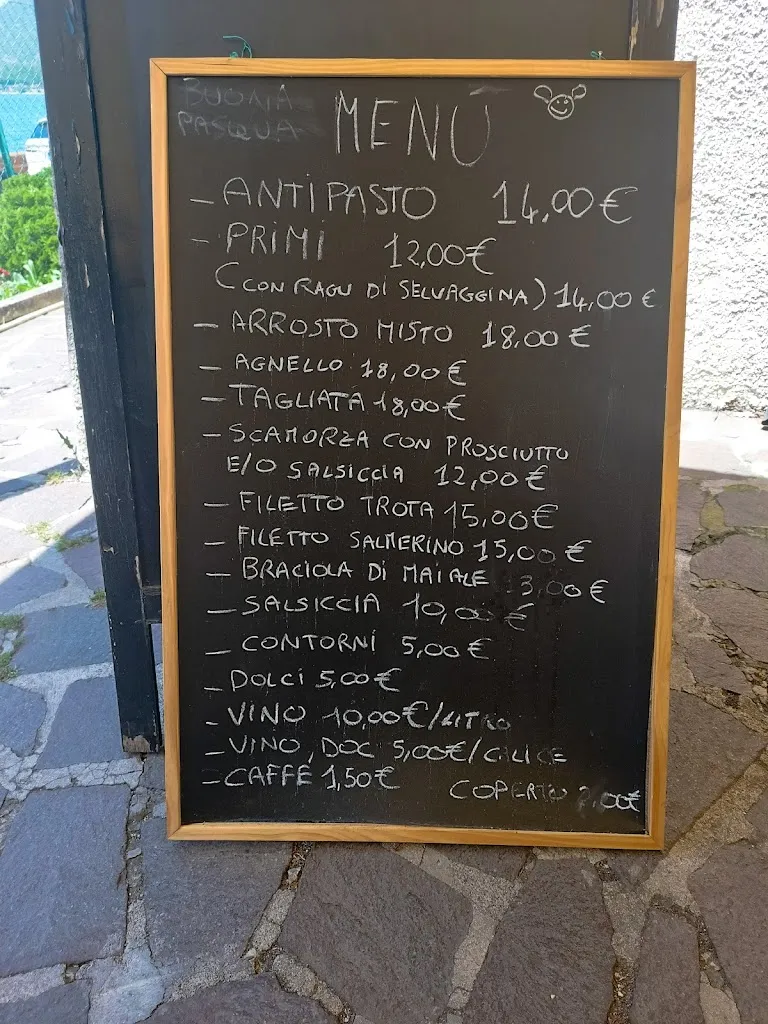 BUONA
PASQUA
MENÙ
- ANTIPASTO 14,00€
- PRIMI 12,00€
(CON RAGU DI SELVAGGINA) 14,00 €
- ARROSTO MISTO 18,00 €
- AGNELLO 18,00 €
- TAGLIATA 18,00€
- SCAMORZA CON PROSCIUTTO
E/O SALSICCIA 12,00€
- FILETTO TROTA 15,00€
- FILETTO SALMERINO 15,00 €
- BRACIOLA DI MAIALE
- SALSICCIA 10,00 €
- CONTORNI 5,00 €
- DOLCI 5,00€
- VINO 10,00€/LITRO
- VINO DOC 5,00€/CALICE
- CAFFÈ 1,50€ COPERTO 2,00€